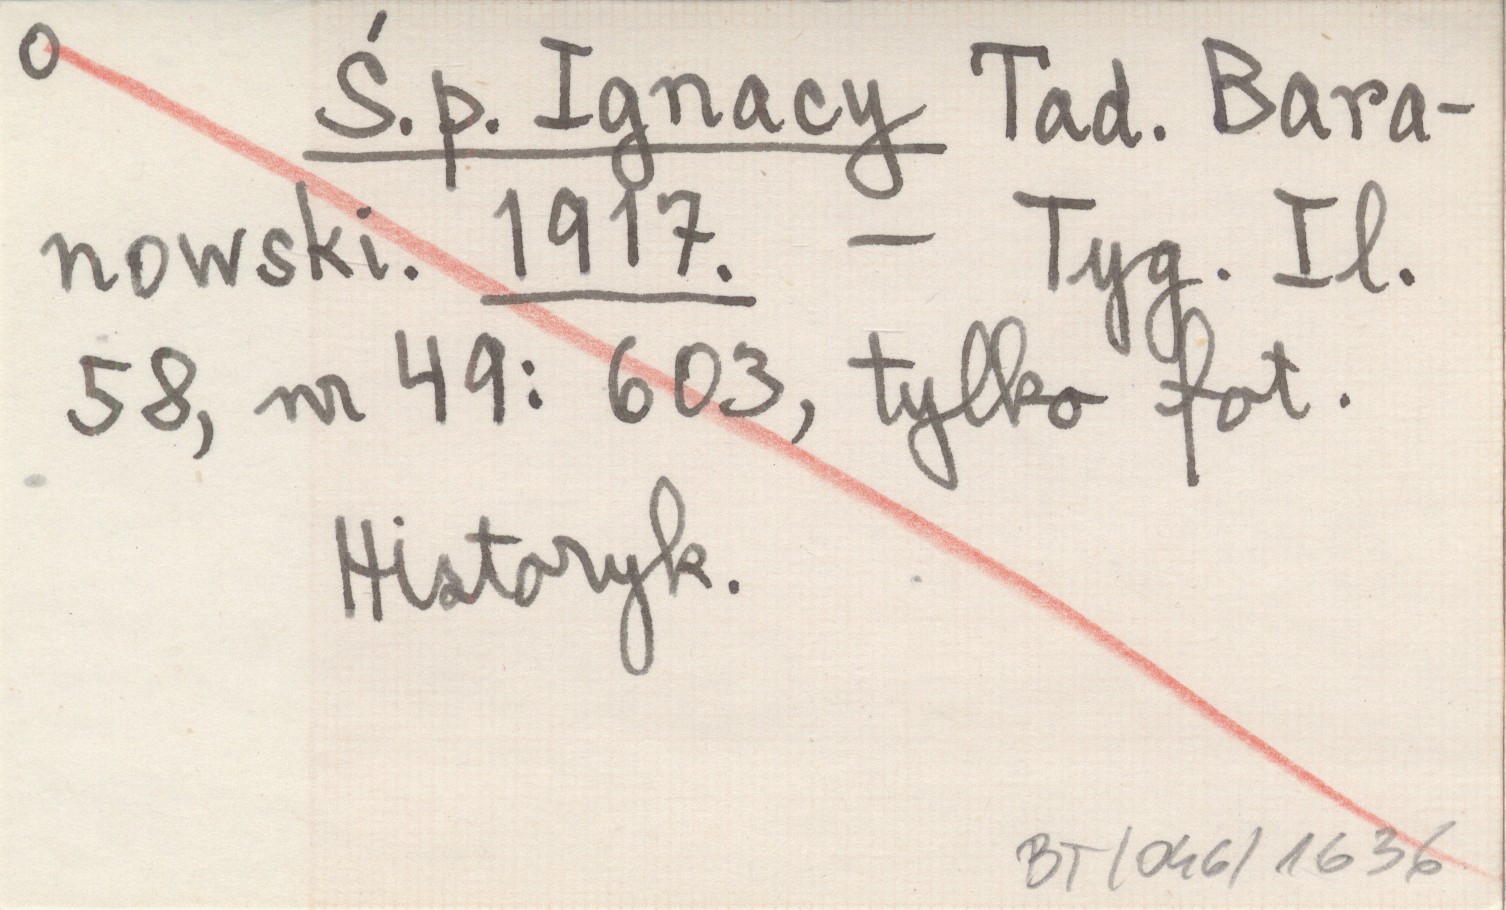 O Ś.p. Ignacy Tad. Bara-
nowski. 1917. — Tyg. Il.
58, nr 49: 603, tylko fot.
Historyk.
BT/046/1636